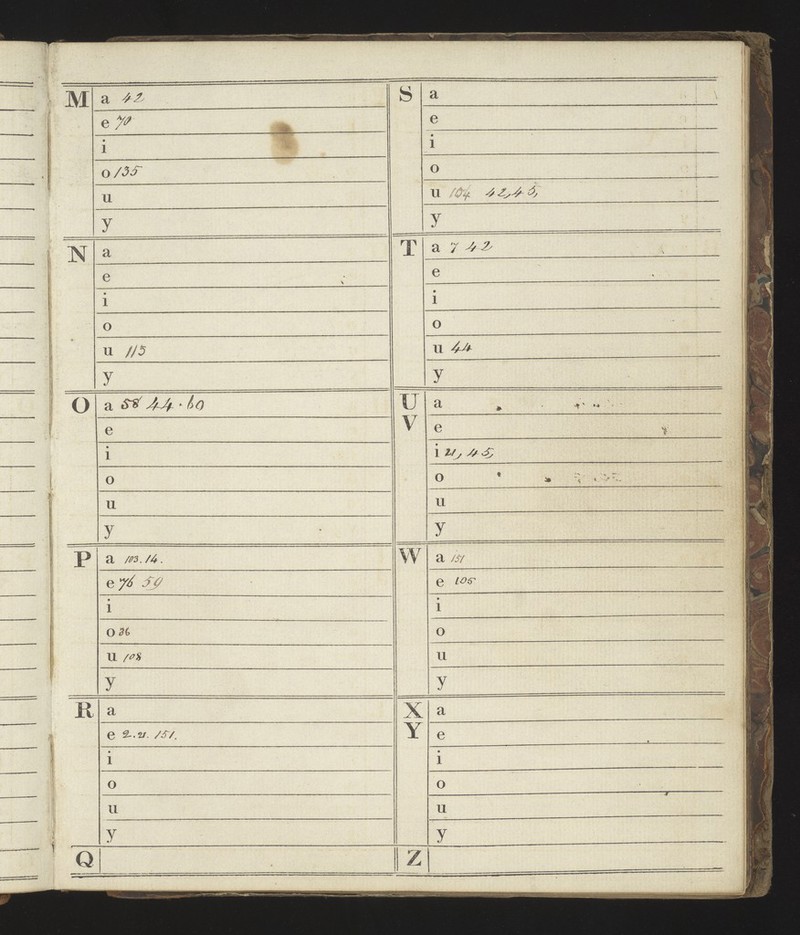 M a 42
e 70
i
o 135
u
y
N a
e
i
o
u 113
y
O a 58 44 · 60
e
i
o
u
y
P a 103. 14.
e 76 59
i
o 36
u 108
y
R a
e 2. 21. 151.
i
o
u
y
Q
S a
e
i
o
u 104 42, 45,
y
T a 7 42
e
i
o
u 44
y
U a
V e
i 21, 45,
o
u
y
W a 151
e 105
i
o
u
y
X a
Y e
i
o
u
y
Z